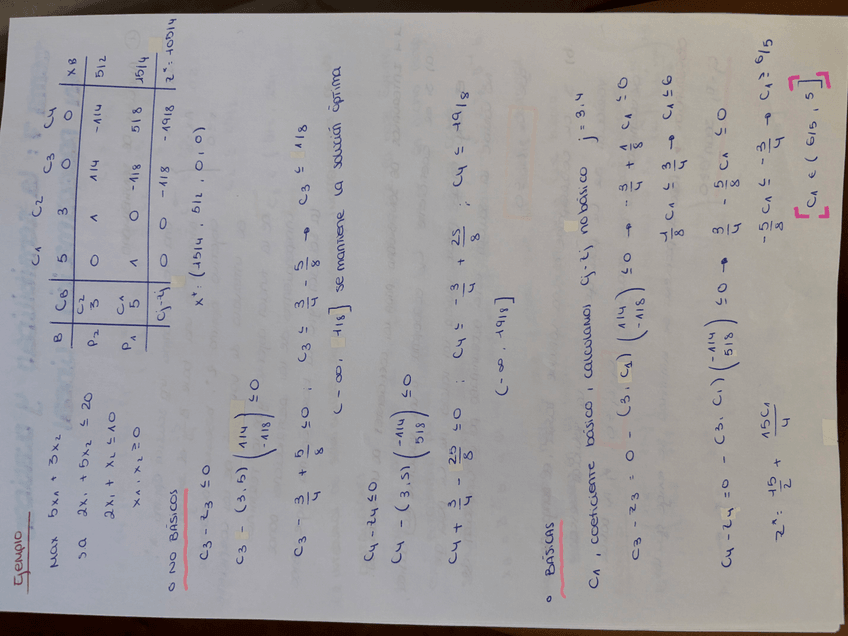 Ejemplo
Max 5x1 + 3x2
sa 2x1 + 5x2 ≤ 20
2x1 + x2 ≤ 10
x1, x2 ≥ 0
C1 C2 C3 C4
B CB 5 3 0 0 XB
P2 C2 3 0 1 1/4 -1/4 5/2
P1 C1 5 1 0 -1/8 5/8 15/4
Cj-Zj 0 0 -1/8 -19/8 z*=105/4
x*: (15/4, 5/2, 0, 0)
o NO BÁSICOS
C3 - Z3 ≤ 0
C3 - (3,5) (1/4 -1/8) ≤ 0
C3 - 3/4 + 5/8 ≤ 0, C3 ≤ 3/4 - 5/8 → C3 ≤ 1/8
(-∞, 1/8] se mantiene la solución óptima
C4 - Z4 ≤ 0
C4 - (3,5) (-1/4 5/8) ≤ 0
C4 + 3/4 - 25/8 ≤ 0; C4 ≤ -3/4 + 25/8; C4 ≤ 19/8
(-∞, 19/8]
o BÁSICAS
C1, coeficiente básico, calculamos Cj-Zj no básico j = 3,4
C3 - Z3 = 0 - (3, C1) (1/4 -1/8) ≤ 0 → -3/4 + 1/8 C1 ≤ 0
1/8 C1 ≤ 3/4 → C1 ≤ 6
C4 - Z4 = 0 - (3, C1) (-1/4 5/8) ≤ 0 → 3/4 - 5/8 C1 ≤ 0
-5/8 C1 ≤ -3/4 → C1 ≥ 6/5
z*= 15/2 + 15C1/4
[C1 ∈ (6/5, 5]